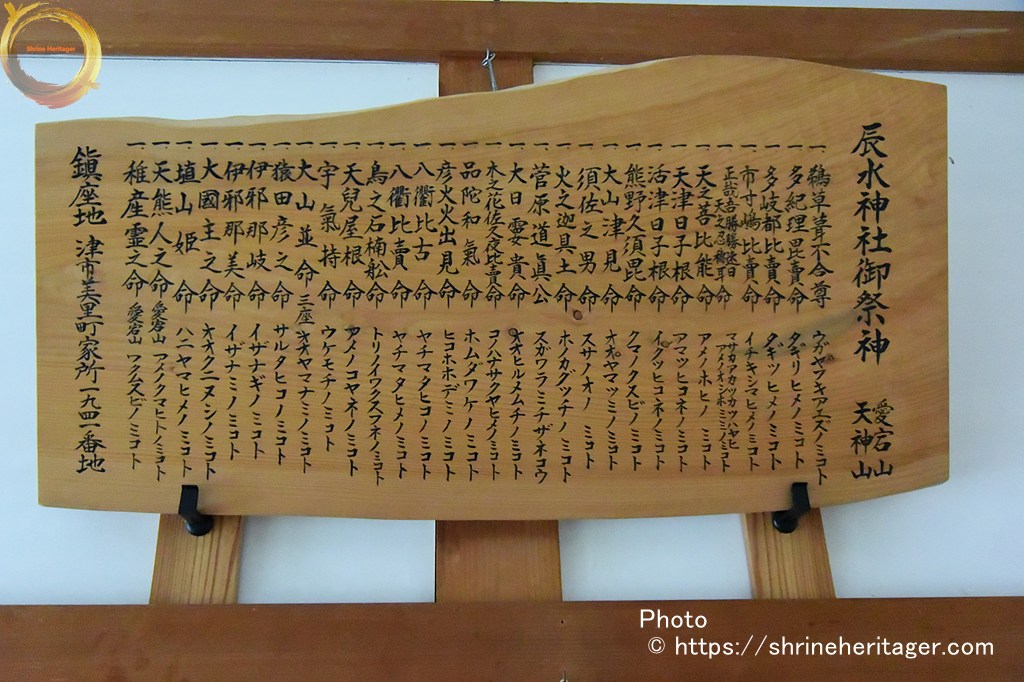 辰水神社御祭神 愛宕山 天神山
一 鵜草葺不合尊 ウガヤフキアエズノミコト
一 多紀理毘賣命 タギリヒメノミコト
一 多岐都比賣命 タギツヒメノミコト
一 市寸嶋比賣命 イチキシマヒメノミコト
一 正哉吾勝勝速日天之忍穂耳命 マサカアカツカツハヤヒアメノオシホミミノミコト
一 天之菩比能命 アメノホヒノミコト
一 天津日子根命 アマツヒコネノミコト
一 活津日子根命 イクツヒコネノミコト
一 熊野久須毘命 クマノクスビノミコト
一 大山津見命 オオヤマツミノミコト
一 須佐之男命 スサノオノミコト
一 火之迦具土命 ホノカグツチノミコト
一 菅原道眞公 スガワラミチザネコウ
一 大日孁貴命 オオヒルメムチノミコト
一 木之花佐久夜比賣命 コノハナサクヤヒメノミコト
一 品陀和氣命 ホムダワケノミコト
一 彦火火出見命 ヒコホホデミノミコト
一 八衢比古命 ヤチマタヒコノミコト
一 八衢比賣命 ヤチマタヒメノミコト
一 鳥之石楠舩命 トリノイワクスフネノミコト
一 天兒屋根命 アメノコヤネノミコト
一 宇氣持命 ウケモチノミコト
一 大山並命 三座 オオヤマナミノミコト
一 猿田彦之命 サルタヒコノミコト
一 伊邪那岐命 イザナギノミコト
一 伊邪那美命 イザナミノミコト
一 大國主之命 オオクニヌシノミコト
一 埴山姫命 ハニヤマヒメノミコト
一 天熊人之命 愛宕山 アメノクマヒトノミコト
一 稚産霊之命 愛宕山 ワクムスビノミコト
鎮座地 津市美里町家所一九四一番地
Shrine Heritager
Photo
© https://shrineheritager.com